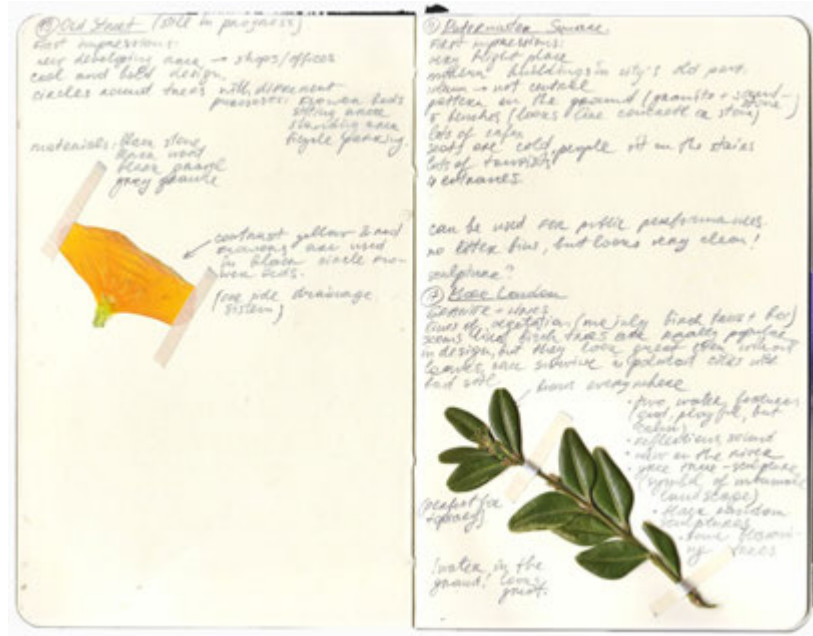 Old Street (still in progress)
First impressions:
new developing area → shops/offices
cool and bold design,
circles round trees with different
purposes: flower beds
sitting area
standing area
bicycle parking.
materials: black stone
black wood
black gravel
grey granite
contrast yellow & red
flowers are used
in black circle flo-
wer beds.
(one side drainage
system)
Paternoster Square
First impressions:
very bright place
modern buildings in city's old part.
column → not central
pattern on the ground (granite + sand-
stone)
5 benches (looks like concrete or stone)
lots of cafes
seats are cold, people sit on the stairs
lots of tourists
4 entrances.
can be used for public performances.
no litter bins, but looks very clean!
sculpture?
⑦ More London
GRANITE +
lines of vegetation (mainly birch trees + box)
seems like birch trees are really popular
in design, but they look great even without
leaves, can survive in polluted cities with
bad soil
from everywhere
• two water features
(and, playful, but
calm)
• reflections around
• view on the river
(symbol of
landscape)
• black random
sculptures
• some flowering
trees
(perfect for
topiary)
!water in the
ground! looks
great.